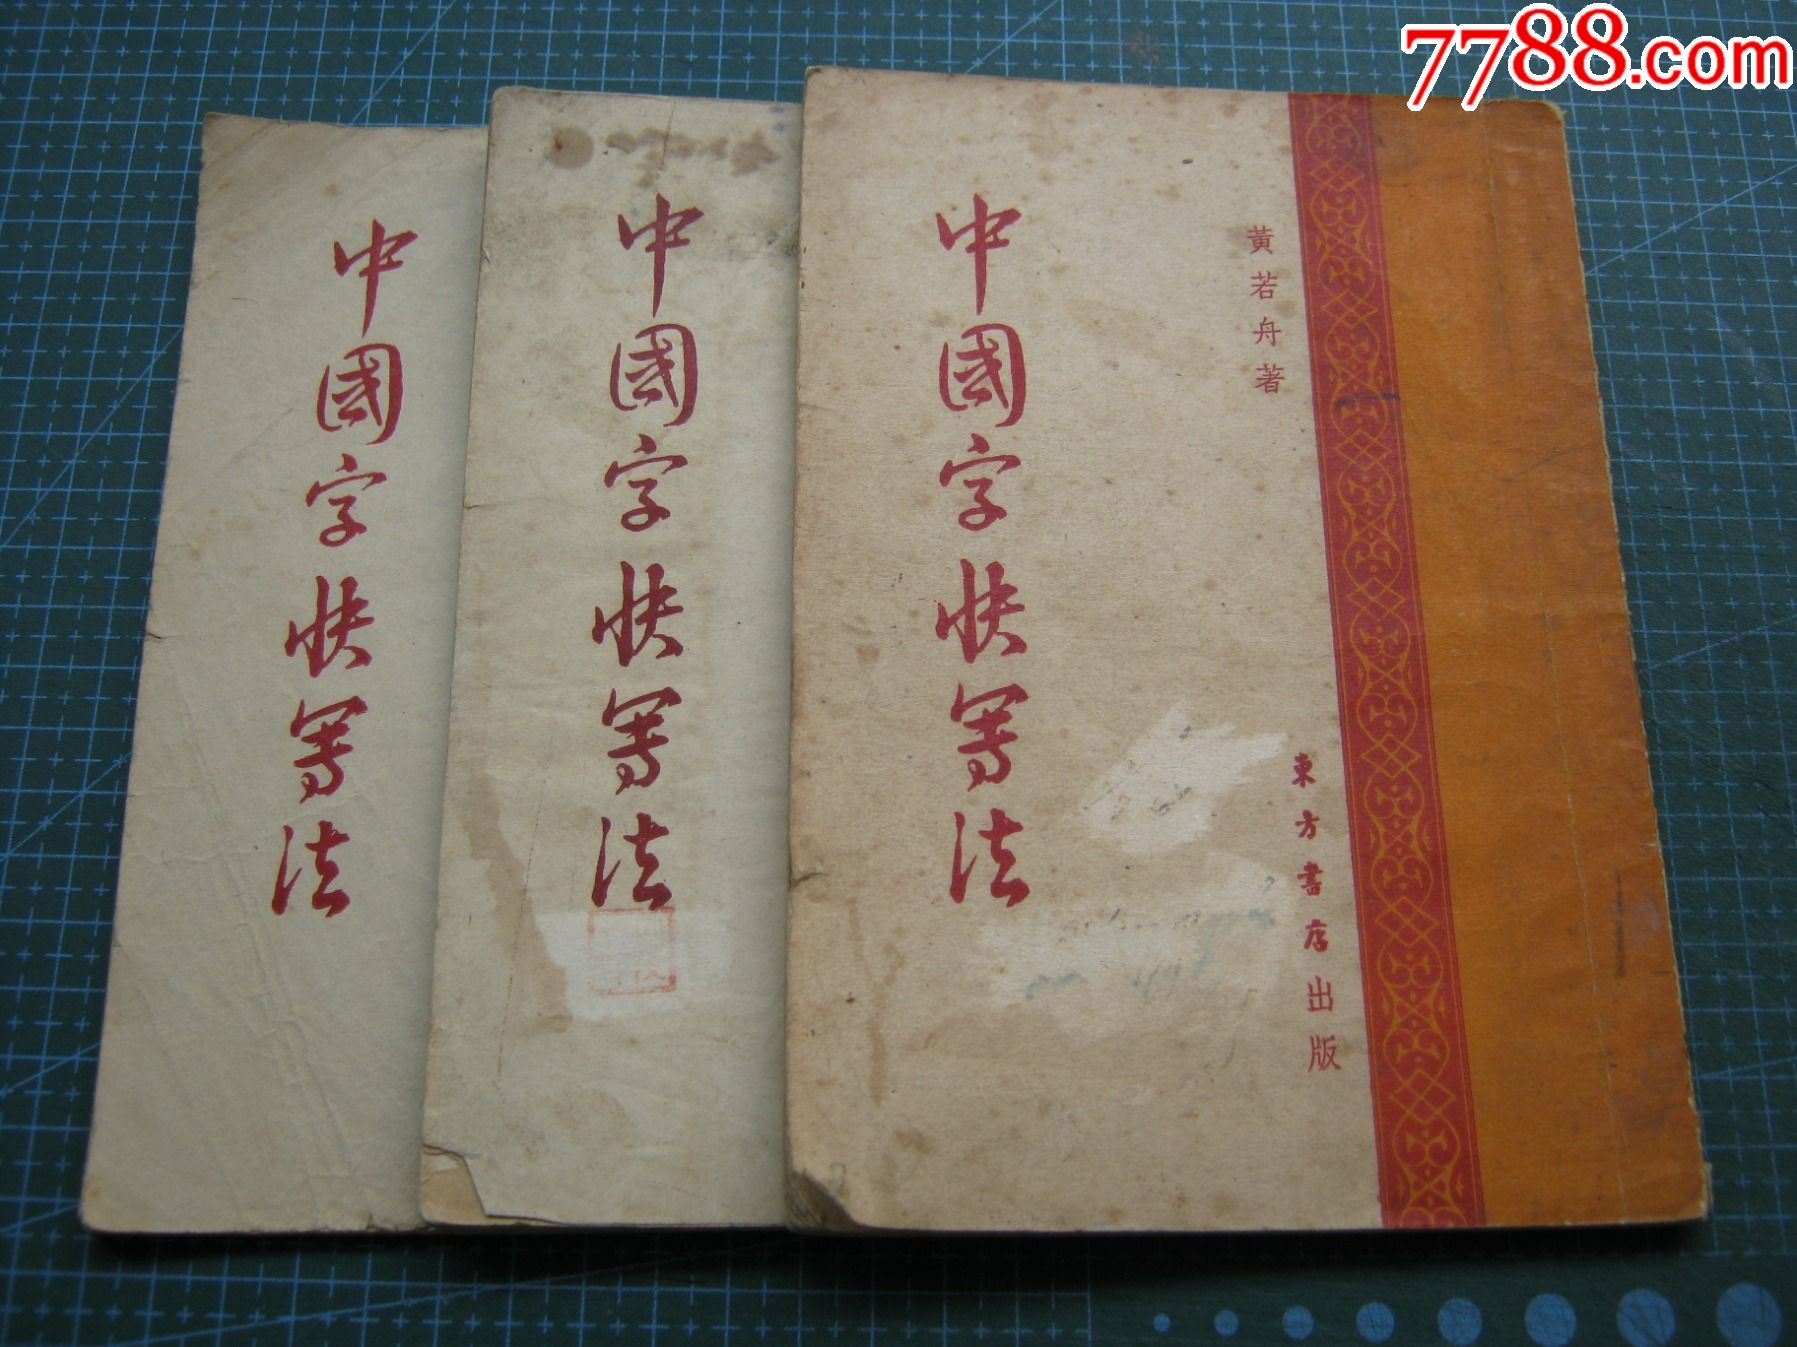 7788.com
中國字快寫法
中國字快寫法
中國字快寫法
黃若舟著
東方書店出版